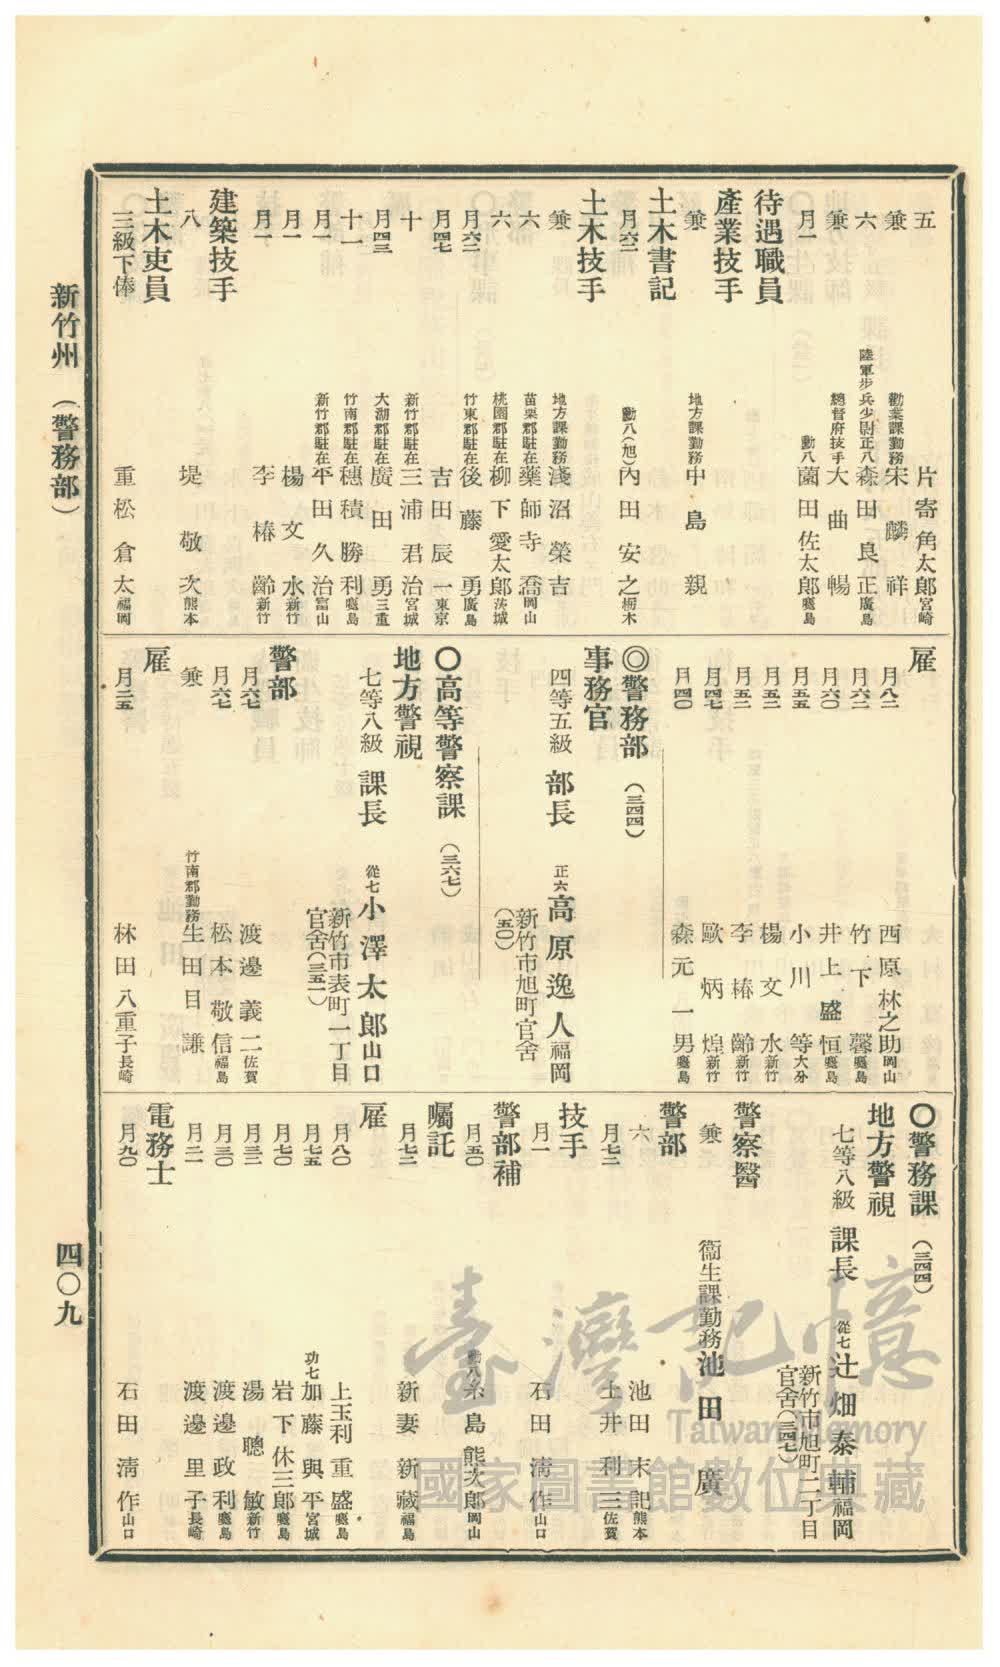 五 片寄角太郎 宮崎
兼 勸業課勤務 宋麟祥
六 陸軍步兵少尉正八 森田良正 廣島
兼 總督府技手 大曲暢
月一 勳八 薗田佐太郎 鹿島
待遇職員
產業技手
兼 地方課勤務 中島親
土木書記
月六二 勳八(旭) 內田安之 栃木
土木技手
兼 地方課勤務 淺沼榮吉
六 苗栗郡駐在 藥師寺喬 岡山
六 桃園郡駐在 柳下愛太郎 茨城
月六二 竹東郡駐在 後藤勇 廣島
月四七 吉田辰一 東京
十 新竹郡駐在 三浦君治 宮城
月四三 大湖郡駐在 廣田勇 三重
十一 竹南郡駐在 穗積勝利 鹿島
月一 新竹郡駐在 平田久治 富山
月一 楊文水 新竹
月一 李椿齡 新竹
建築技手
八 堤敬次 熊本
土木吏員
三級下俸 重松倉太 福岡
雇
月八二 西原林之助 岡山
月六二 竹下馨 鹿島
月六〇 井上盛恒 鹿島
月五五 小川等 大分
月五二 楊文水 新竹
月五二 李椿齡 新竹
月四七 歐炳煌 新竹
月四〇 森元一男 鹿島
◎警務部 (三四四)
事務官
四等五級 部長 正六 高原逸人 福岡
新竹市旭町官舍
(五〇)
〇高等警察課 (三六七)
地方警視
七等八級 課長 從七 小澤太郎 山口
新竹市表町一丁目
官舍(三五一)
警部
月六七 渡邊義二 佐賀
月六七 松本敬信 福島
兼 竹南郡勤務 生田目謙
雇
月二五 林田八重子 長崎
〇警務課 (三四四)
地方警視
七等八級 課長 從七 辻畑泰輔 福岡
新竹市旭町二丁目
官舍(三四七)
警察醫
兼 衞生課勤務 池田廣
警部
六 池田末記 熊本
月七二 土井利三 佐賀
技手
月一 石田淸作 山口
警部補
月五〇 勳八 糸島熊次郎 岡山
囑託
月七二 新妻新藏 福島
雇
月八〇 上玉利重盛 鹿島
月七五 功七 加藤與平 宮城
月七〇 岩下休三郎 鹿島
月三三 湯聰敏 新竹
月三〇 渡邊政利 鹿島
月二一 渡邊里子 長崎
電務士
月九〇 石田淸作 山口
新竹州 (警務部)
四〇九
臺灣記憶
Taiwan Memory
國家圖書館數位典藏